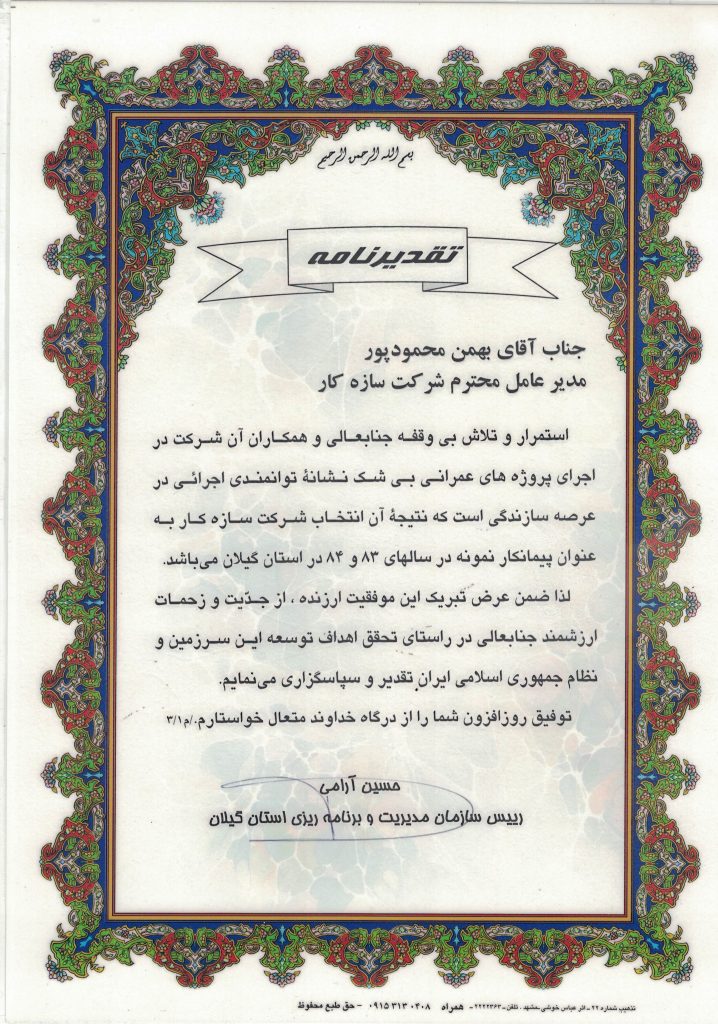 بسم الله الرحمن الرحیم
تقدیرنامه
جناب آقای بهمن محمودپور
مدیر عامل محترم شرکت سازه کار
استمرار و تلاش بی وقفه جنابعالی و همکاران آن شرکت در
اجرای پروژه های عمرانی بی شک نشانهٔ توانمندی اجرائی در
عرصه سازندگی است که نتیجهٔ آن انتخاب شرکت سازه کار به
عنوان پیمانکار نمونه در سالهای ۸۳ و ۸۴ در استان گیلان می‌باشد.
لذا ضمن عرض تبریک این موفقیت ارزنده ، از جدّیت و زحمات
ارزشمند جنابعالی در راستای تحقق اهداف توسعه این سرزمین و
نظام جمهوری اسلامی ایران تقدیر و سپاسگزاری می‌نمایم.
توفیق روزافزون شما را از درگاه خداوند متعال خواستارم./م۳/۱
حسین آرامی
رییس سازمان مدیریت و برنامه ریزی استان گیلان
تذهیب شماره ۲۲ - اثر عباس خوشی - مشهد . تلفن - ۲۲۲۲۳۶۳ - همراه ۰۹۱۵ ۳۱۳ ۰۴۰۸ - حق طبع محفوظ